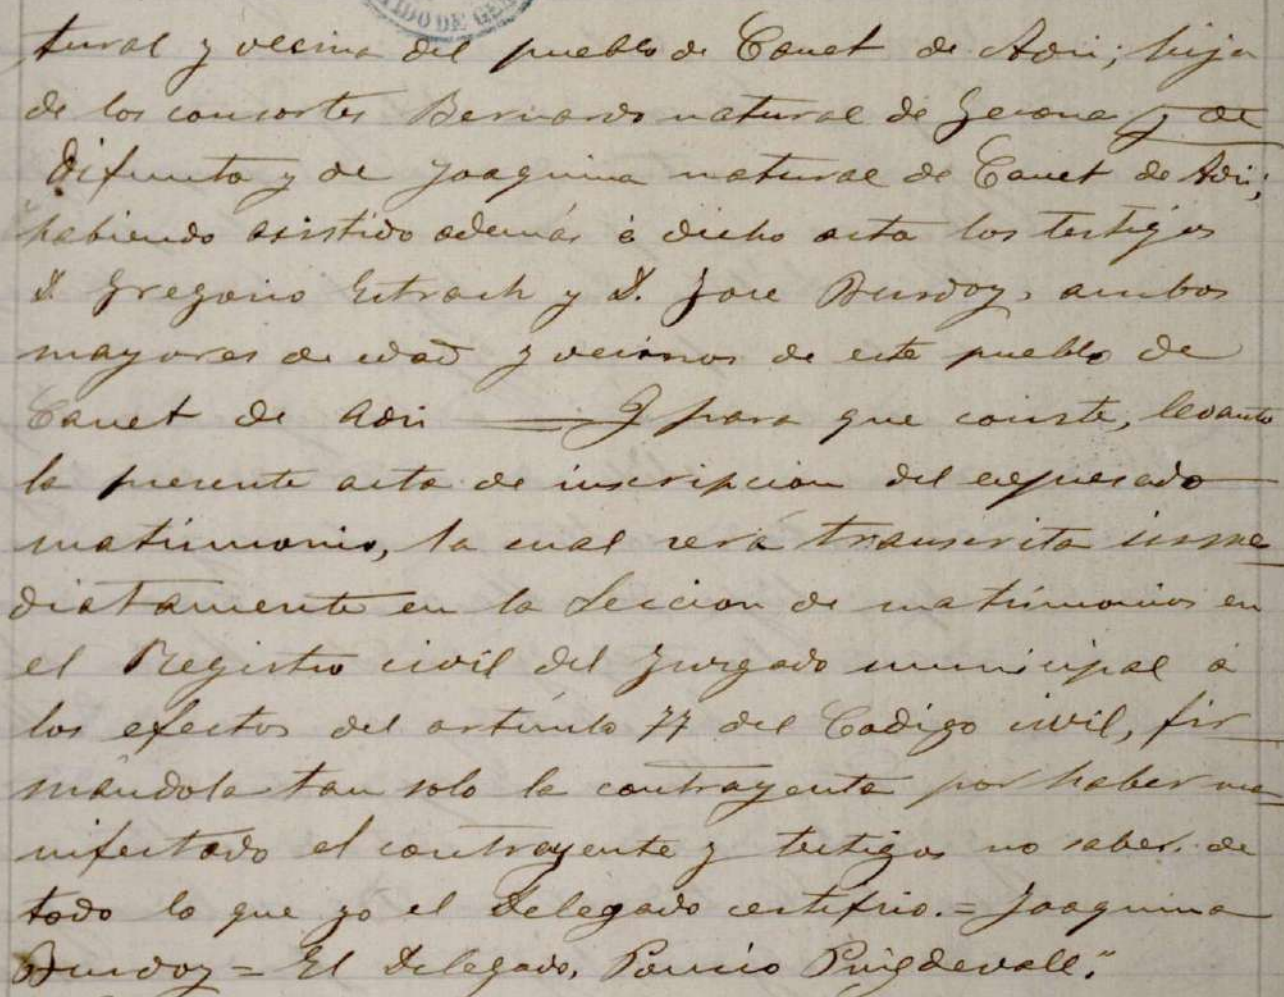 TIDO DE GE
tural y vecina del pueblo de Canet de Adri; hija
de los consortes Bernardo natural de Gerona y de
difunto y de Joaquina natural de Canet de Adri;
habiendo asistido además á dicho acto los testigos
D. Gregorio Estrach y D. Jose Burdoy, ambos
mayores de edad y vecinos de este pueblo de
Canet de Adri — Y para que conste, levanto
la presente acta de inscripcion del expresado
matrimonio, la cual será transcrita inme
diatamente en la Seccion de matrimonios en
el Registro civil del Juzgado municipal á
los efectos del articulo 77 del Codigo civil, fir
mandola tan solo la contrayente por haber ma
nifestado el contrayente y testigos no saber. de
todo lo que yo el Delegado certifico.= Joaquina
Burdoy = El Delegado, Poncio Puigdevall."